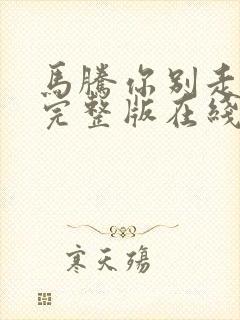 馬騰你别走
完整版在綫
寒天殤